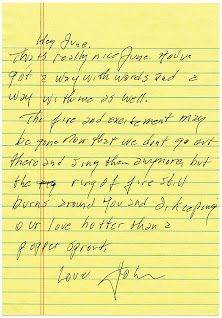 Hey June,
That's really nice June. You've
got a way with words and a
way with me as well.
The fire and excitement may
be gone now that we don't go out
there and sing them anymore, but
the ring of fire still
burns around you and I, keeping
our love hotter than a
pepper sprout.
Love John